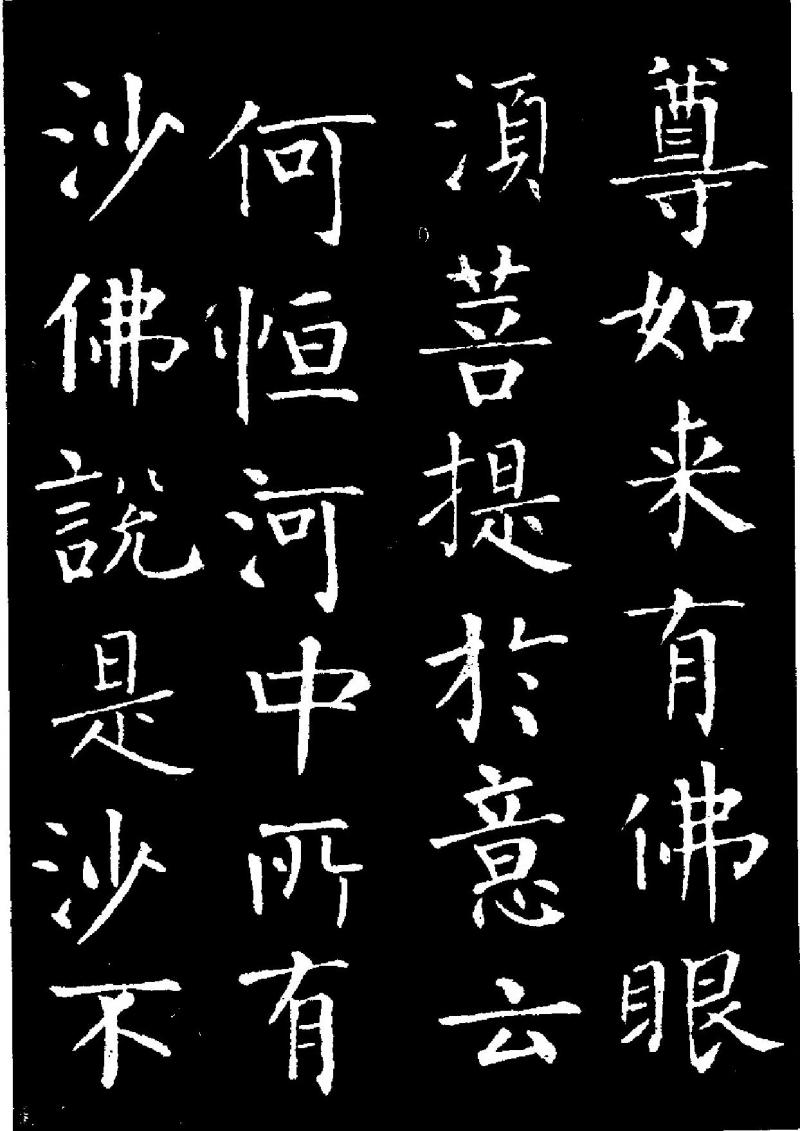 尊如来有佛眼
湏菩提於意云
何恒河中所有
沙佛說是沙不